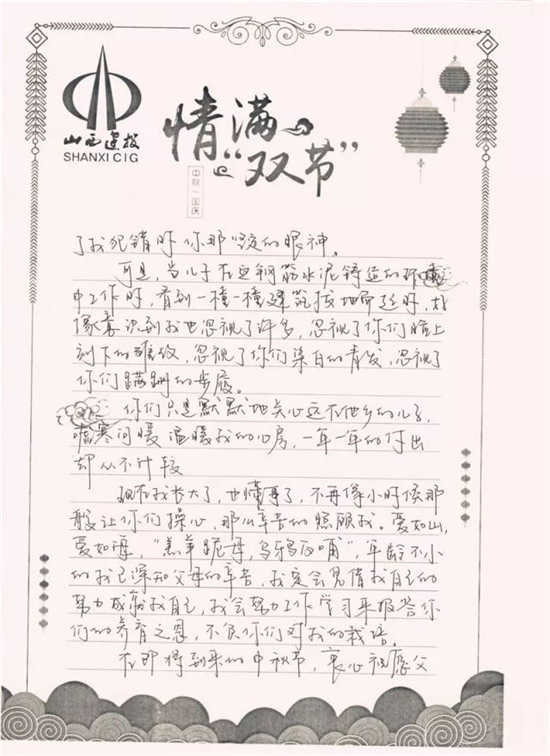 山西建投
SHANXI CIG
情满
“双节”
中秋 国庆
了我犯错时你那 的眼神。
可是，当儿子在这钢筋水泥铸造的环境
中工作时，看到一楼一楼建筑拔地而起时，好
像意识到我也忽视了许多，忽视了你们脸上
刻下的 ，忽视了你们染白的青发，忽视了
你们蹒跚的步履。
你们只是默默地关心远在他乡的儿子，
嘘寒问暖温暖我的心房，一年一年的付出
却从不计较
现在我长大了，也懂事了，不再像小时候那
般让你们操心，那么辛苦的照顾我。爱如山，
爱如海，“羔羊跪母，乌鸦反哺”，年龄不小
的我已深知父母的辛苦，我定会凭借我自己的
努力成就我自己，我会努力工作学习来报答你
们的养育之恩，不负你们对我的栽培。
在即将到来的中秋节，衷心祝愿父